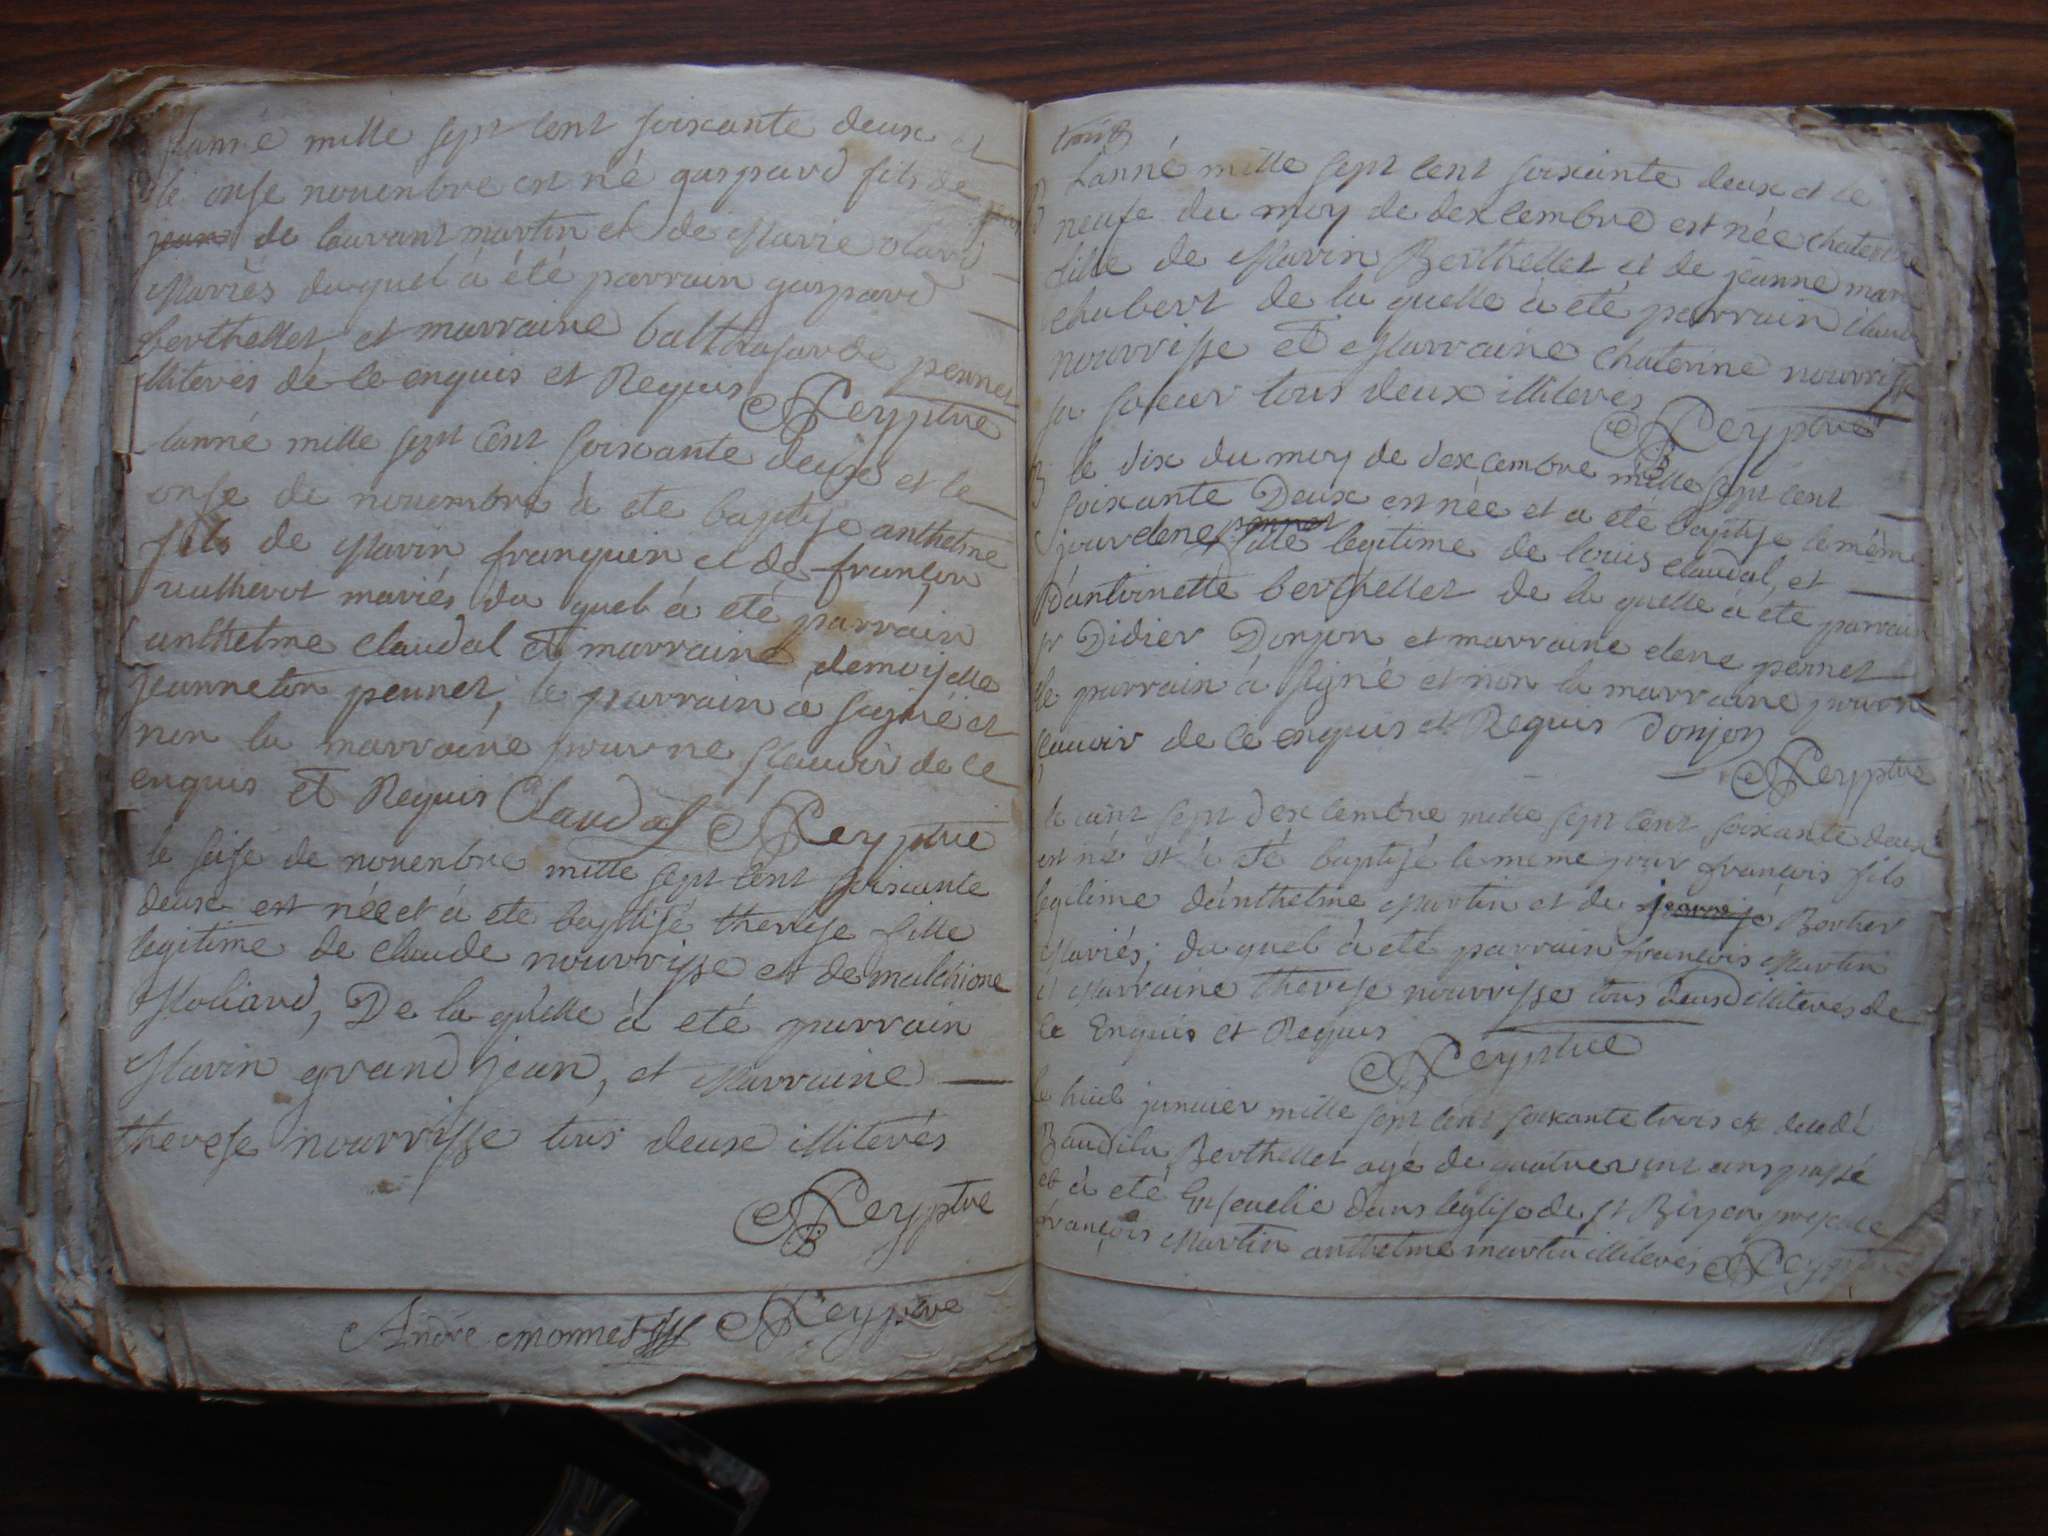 lanné mille sept cent soixante deux et
le onse nouenbre est né gaspard fils de
jean de laurant martin et de Marie
Mariés duquel à été parrain gaspard
berthellet et marraine balthasarde pennet
illiterés de ce enquis et Requis Rey ptre
lanné mille sept cent soixante deux et le
onse de nouembre à ete baptise anthelme
fils de Marin franquin et de françon
mariés du quel à eté parrain
anthelme claudal et marraine demoiselle
jeanneton pennet, le parrain a signé et
non la marraine pour ne scauoir de ce
enquis et Requis Claudal Rey ptre
le seise de nouenbre mille sept cent soixante
deux est née et à ete baptisé therese fille
legitime de claude nourrisse et de malchione
Moliard, De la quelle à eté parrain
Marin grand jean, et Marraine
therese nourrisse tous deux illiterés
Rey ptre
André monnet Rey ptre
lanné mille sept cent soixante deux et le
neufe du moy de dexcembre est née chaterine
fille de Marin Berthellet et de jeanne marie
chubert de la quelle à eté parrain claude
nourrisse et Marraine chaterine nourrisse
sa soeur tous deux illiterés
Rey ptre
B le dix du moy de dexcembre mille sept cent
soixante Deux est née et a ete baptise le mème
jour elene pennet fille legitime de louis claudal et
d'antoinette berthellet de la quelle à ete parrain
sr Didier Donjon et marraine elene pennet
le parrain à signé et non la marraine pour ne
scauoir de ce enquis et Requis Donjon
Rey ptre
le vint sept dexcembre mille sept cent soixante deux
est né et à eté baptisé le mème jour françois fils
legitime d'anthelme Martin et de Bertier
Mariés, du quel à eté parrain françois Martin
et Marraine therese nourrisse tous deux illiterés de
ce Enquis et Requis
Rey ptre
le huit januier mille sept cent soixante trois est decedé
Baudila Berthellet agé de quatrevint ans passé
et à eté Enseuelie dans leglise de st presents
françois Martin anthelme martin illiterés Rey ptre